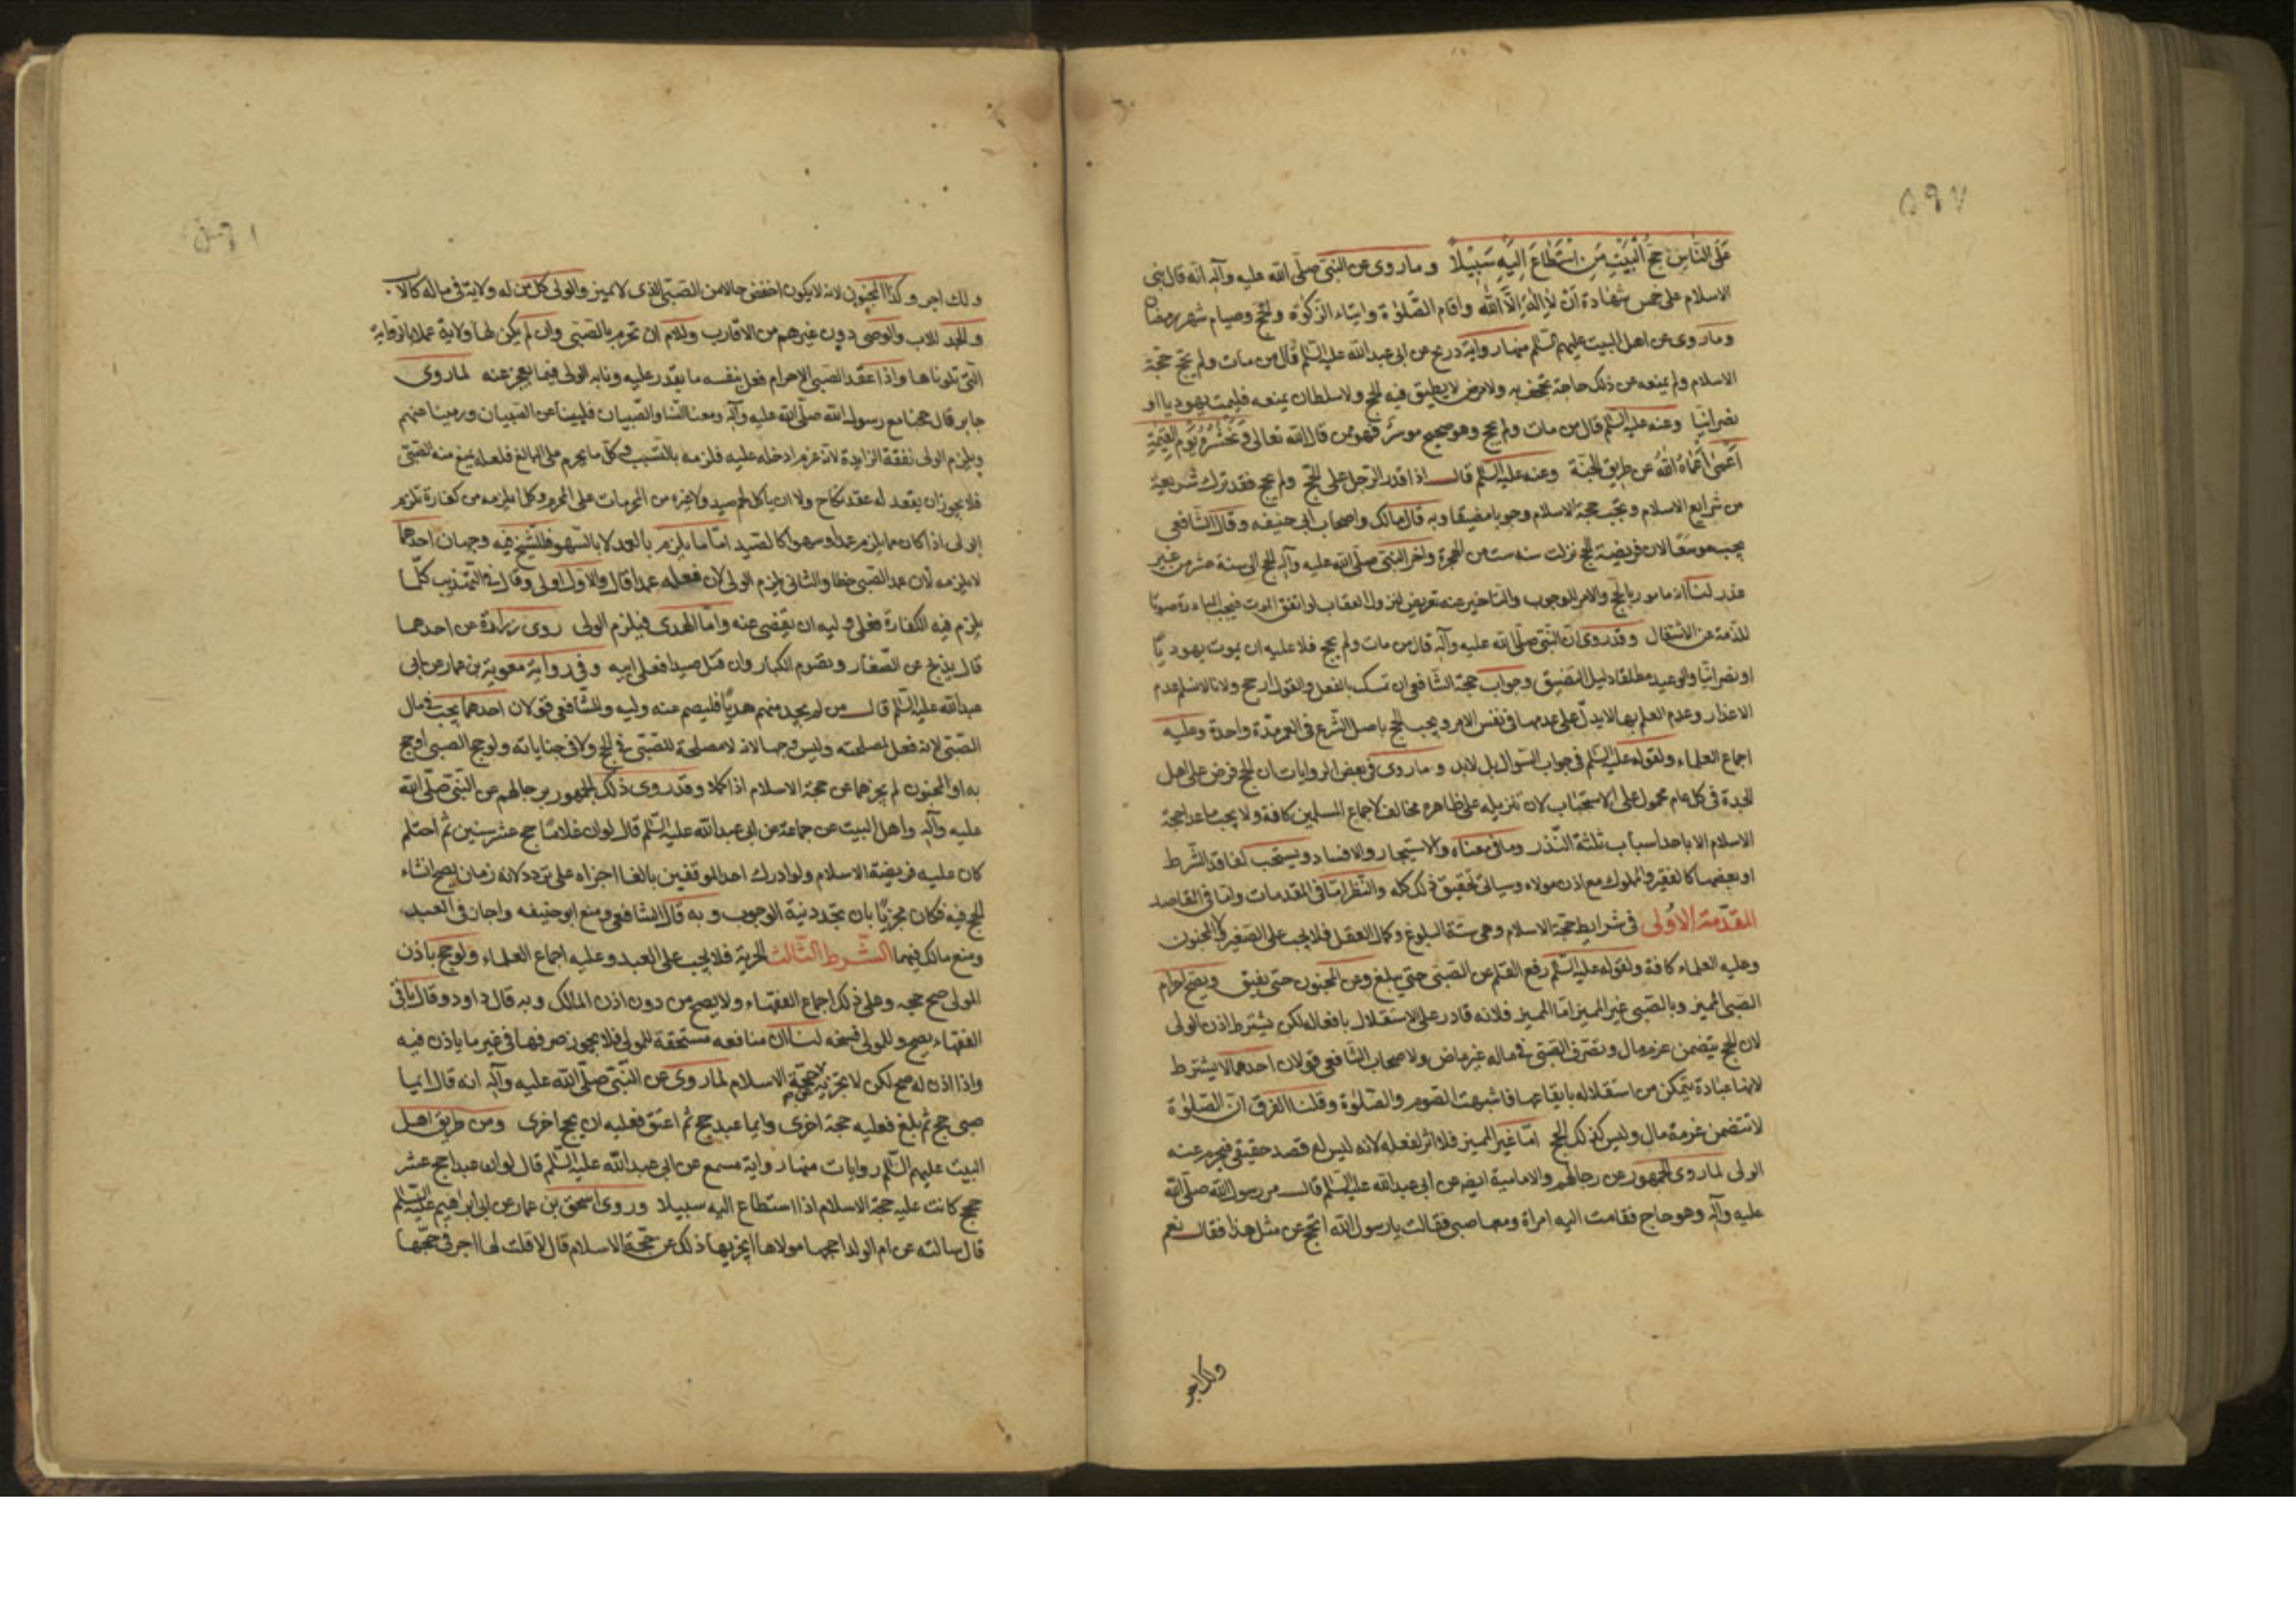 ٥٩٧
عَلَى النَّاسِ حِجُّ الْبَيْتِ مَنِ اسْتَطَاعَ اِلَيْهِ سَبِيْلًا وما روى عن النبى صلّى الله عليه وآله انه قال بنى
الاسلام على خمس شهادة اَنْ لا اِلٰهَ اِلَّا الله واقام الصّلوة وايتاء الزكوة والحج وصيام شهر رمضان
وما روى عن اهل البيت عليهم السّلم منها رواية ذريح عن ابى عبدالله عليه السّلم قال من مات ولم يحج حجّة
الاسلام ولم يمنعه من ذلك حاجة تجحف به ولا مرض لا يطيق فيه الحج ولا سلطان يمنعه فليمت يهوديا او
نصرانيّا وعنه عليه السّلم قال من مات ولم يحج وهو صحيح موسر فهو ممن قال الله تعالى وَنَحْشُرُهُ يَوْمَ القِيٰمَةِ
اَعْمٰى اَعْمَاهُ اللهُ عن طريق الجنّة وعنه عليه السّلم قال اذا قدر الرّجل على الحجّ ولم يحج فقد ترك شريعة
من شرايع الاسلام وتجب حجة الاسلام وجوبا مضيقا وبه قال مالك واصحاب ابى حنيفه وقال الشافعى
يجب موسّعا لان فريضة الحج نزلت سنه ست من الهجرة واخر النبى صلّى الله عليه وآله الحج الى سنة عشر من غير
عذر لنا انه مامور بالحج والامر للوجوب والتاخير عنه تعريض لنزول العقاب لو اتفق الموت فيجب المبادرة صونًا
للذمة عن الاشتغال وقد روى ان النّبى صلّى الله عليه وآله قال من مات ولم يحج فلا عليه ان يموت يهوديًّا
او نصرانيّا والوعيد مطلقا دليل التضيق وجواب حجة الشافعى ان تمسك بالفعل والقول ارجح ولانا لا نسلم عدم
الاعذار وعدم العلم بها لا يدلّ على عدمها فى نفس الامر ويجب الحج باصل الشّرع فى العمر مّرة واحدة وعليه
اجماع العلماء ولقوله عليه السّلم فى جواب السّوال بل لابد وما روى فى بعض الروايات ان الحج فرض على اهل
الجدة فى كل عام محمول على الاستحباب لان تنزيله على ظاهره مخالف لاجماع المسلمين كافة ولا يجب ما عدا حجة
الاسلام الا باحد اسباب ثلثة النّذر وما فى معناه والاستيجار والافساد ويستحب لفاقد الشّرط
او بعضها كالفقير والمملوك مع اذن مولاه وسياتى تحقيق ذلك كله والنّظر امّا فى المقدمات وامّا فى المقاصد
المقدّمة الاُولى فى شرايط حجّة الاسلام وهى ستة البلوغ وكمال العقل فلا يجب على الصّغير كالمجنون
وعليه العلماء كافة ولقوله عليه السّلم رفع القلم عن الصّبى حتى يبلغ وعن المجنون حتى يفيق ويصح احرام
الصّبى المميز وبالصّبى غير المميز امّا المميز فلانه قادر على الاستقلال بافعاله لكن يشترط اذن الولى
لان الحج يتضمن غرم مال وتصرّف الصّبى فى ماله غير ماض ولاصحاب الشّافعى قولان احدهما لا يشترط
لانها عبادة يتمكن من استقلاله بايقاعها فاشبهت الصّوم والصّلوة وقلنا الفرق انّ الصّلوة
لا تتضمن غرمة مال وليس كذلك الحج امّا غير المميز فلا اثر لفعله لانه ليس له قصد حقيقى فيحرم عنه
الولى لما روى الجمهور عن رجالهم والامامية ايضا عن ابى عبدالله عليه السّلم قال مر رسول الله صلّى الله
عليه وآله وهو حاج فقامت اليه امراة ومعها صبى فقالت يا رسول الله ايحج عن مثل هذا فقال نعم
ولك اجر
٥٩٨
ولك اجر وكذا المجنون لانه لا يكون اخفض حالا من الصّبى الذى لا يميز والولى كل من له ولاية فى ماله كالاب
والجد للاب والوصى دون غيرهم من الاقارب وللام ان تحرم بالصّبى وان لم يكن لها ولاية عملا بالرّواية
الّتى تلوناها واذا عقد الصّبى الاحرام فعل بنفسه ما يقدر عليه ونابه الولى فيما يعجز عنه لما روى
جابر قال حججنا مع رسول الله صلّى الله عليه وآله ومعنا النّسا والصّبيان فلبينا عن الصّبيان ورمينا عنهم
ويلزم الولى نفقة الزايدة لانه غرم ادخله عليه فلزمه بالتّسبب وكل ما يحرم على البالغ فلعله يمنع منه الصّبى
فلا يجوز ان يعقد له عقد نكاح ولا ان ياكل لحم صيد ولا غيره من المحرمات على المحرم وكلما يلزمه من كفارة تلزم
الولى اذا كان مما يلزم عمدا وسهوا كالصّيد امّا ما يلزم بالعمد لا بالسّهو فللشّيخ فيه وجهان احدهما
لا يلزمه لان عمد الصّبى خطا والثانى يلزم الولى لان فعله عمدا قال والاول اولى وقال فى التّهذيب كلّما
يلزم فيه الكفارة فعلى وليه ان يقضى عنه وامّا الهدى فيلزم الولى روى زرارة عن احدهما
قال يذبح عن الصّغار ويصوم الكبار وان قتل صيدا فعلى ابيه وفى رواية معوية بن عمار عن ابى
عبدالله عليه السّلم قال من لم يجد منهم هديًا فليصم عنه وليه وللشّافعى قولان احدهما يجب فى مال
الصّبى لانه فعل لمصلحته وليس وجها لانه لا مصلحة للصّبى فى الحج ولا فى جناياته ولو حج الصبى او حج
به او المجنون لم يجزهما عن حجة الاسلام اذا كملا وقد روى ذلك الجمهور برجالهم عن النّبى صلّى الله
عليه وآله واهل البيت عن جماعة عن ابى عبدالله عليه السّلم قال لو ان غلامًا حج عشر سنين ثم احتلم
كان عليه فريضة الاسلام ولو ادرك احد الموقفين بالغا اجزاه على تردد لانه زمان يصح انشاء
الحج فيه فكان مجزيًا بان يجدد نية الوجوب وبه قال الشافعى ومنع ابو حنيفه واجاز فى العبد
ومنع مالك فيهما الشّرط الثّالث الحرية فلا يجب على العبد وعليه اجماع العلماء ولو حج باذن
المولى صح حجه وعلى ذلك اجماع الفقهاء ولا يصح من دون اذن المالك وبه قال داود وقال باقى
الفقهاء يصح وللمولى فسخه لنا ان منافعه مستحقة للمولى فلا يجوز صرفها فى غير ما ياذن فيه
واذا اذن له صح لكن لا تجزيه حجّة الاسلام لما روى عن النّبى صلّى الله عليه وآله انه قال ايما
صبى حج ثم بلغ فعليه حجة اخرى وايما عبد حج ثم اعتق فعليه ان يحج اخرى ومن طريق اهل
البيت عليهم السّلم روايات منها رواية مسمع عن ابى عبدالله عليه السّلم قال لو ان عبدا حج عشر
حجج كانت عليه حجة الاسلام اذا استطاع اليه سبيلا وروى اسحق بن عمار عن ابى ابراهيم عليه السّلم
قال سالته عن ام الولد احجها مولاها ايجزيها ذلك عن حجّة الاسلام قال لا قلت لها اجر فى حجّتها